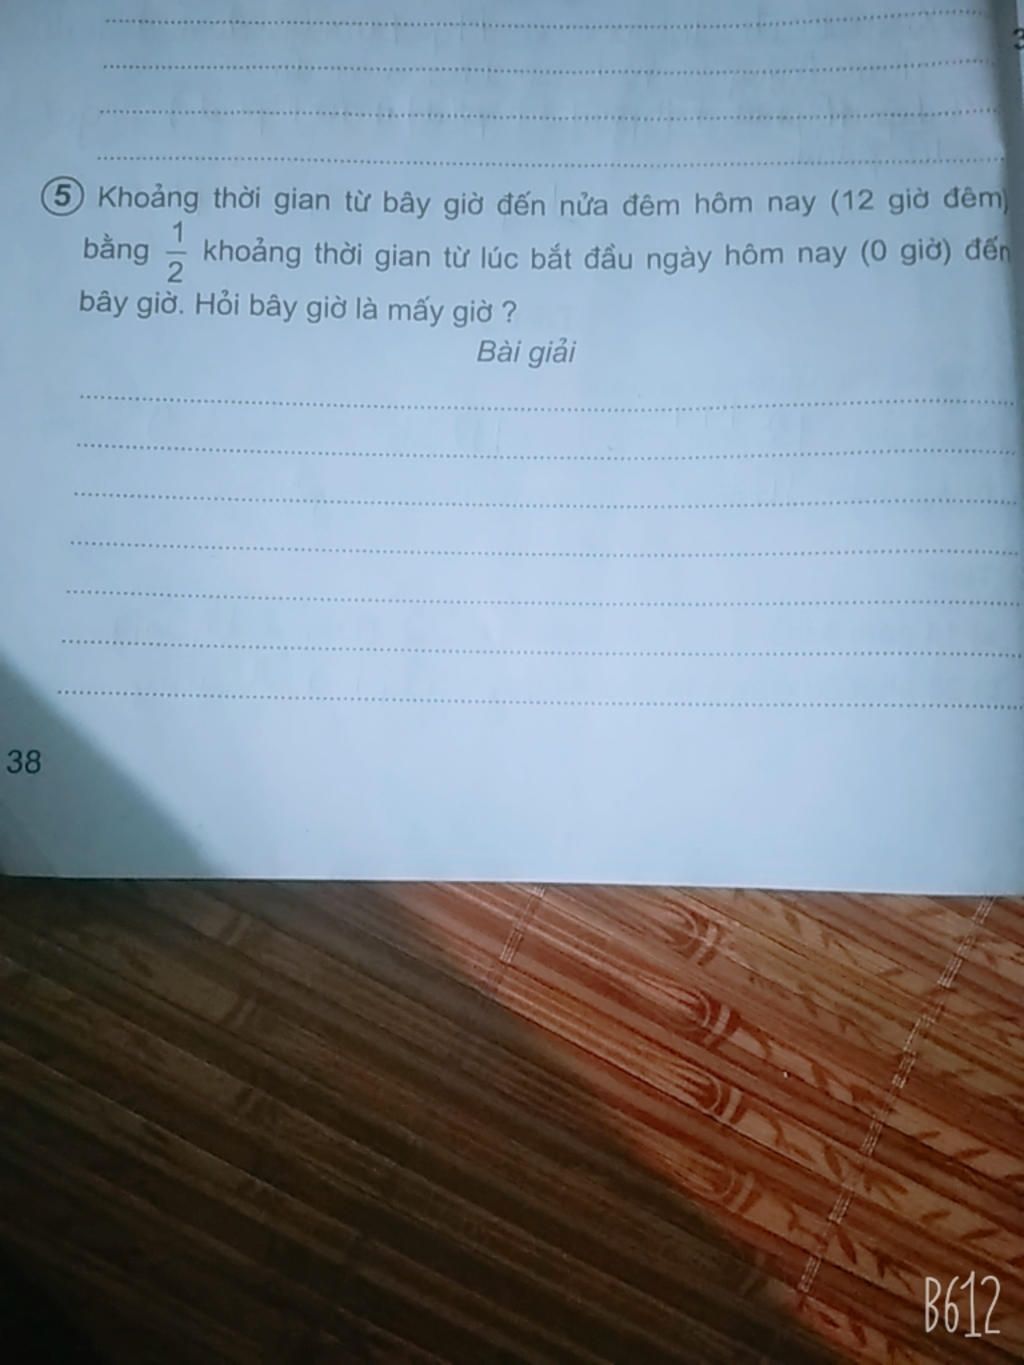 3
5 Khoảng thời gian từ bây giờ đến nửa đêm hôm nay (12 giờ đêm)
bằng 1/2 khoảng thời gian từ lúc bắt đầu ngày hôm nay (0 giờ) đến
bây giờ. Hỏi bây giờ là mấy giờ ?
Bài giải
38
B612